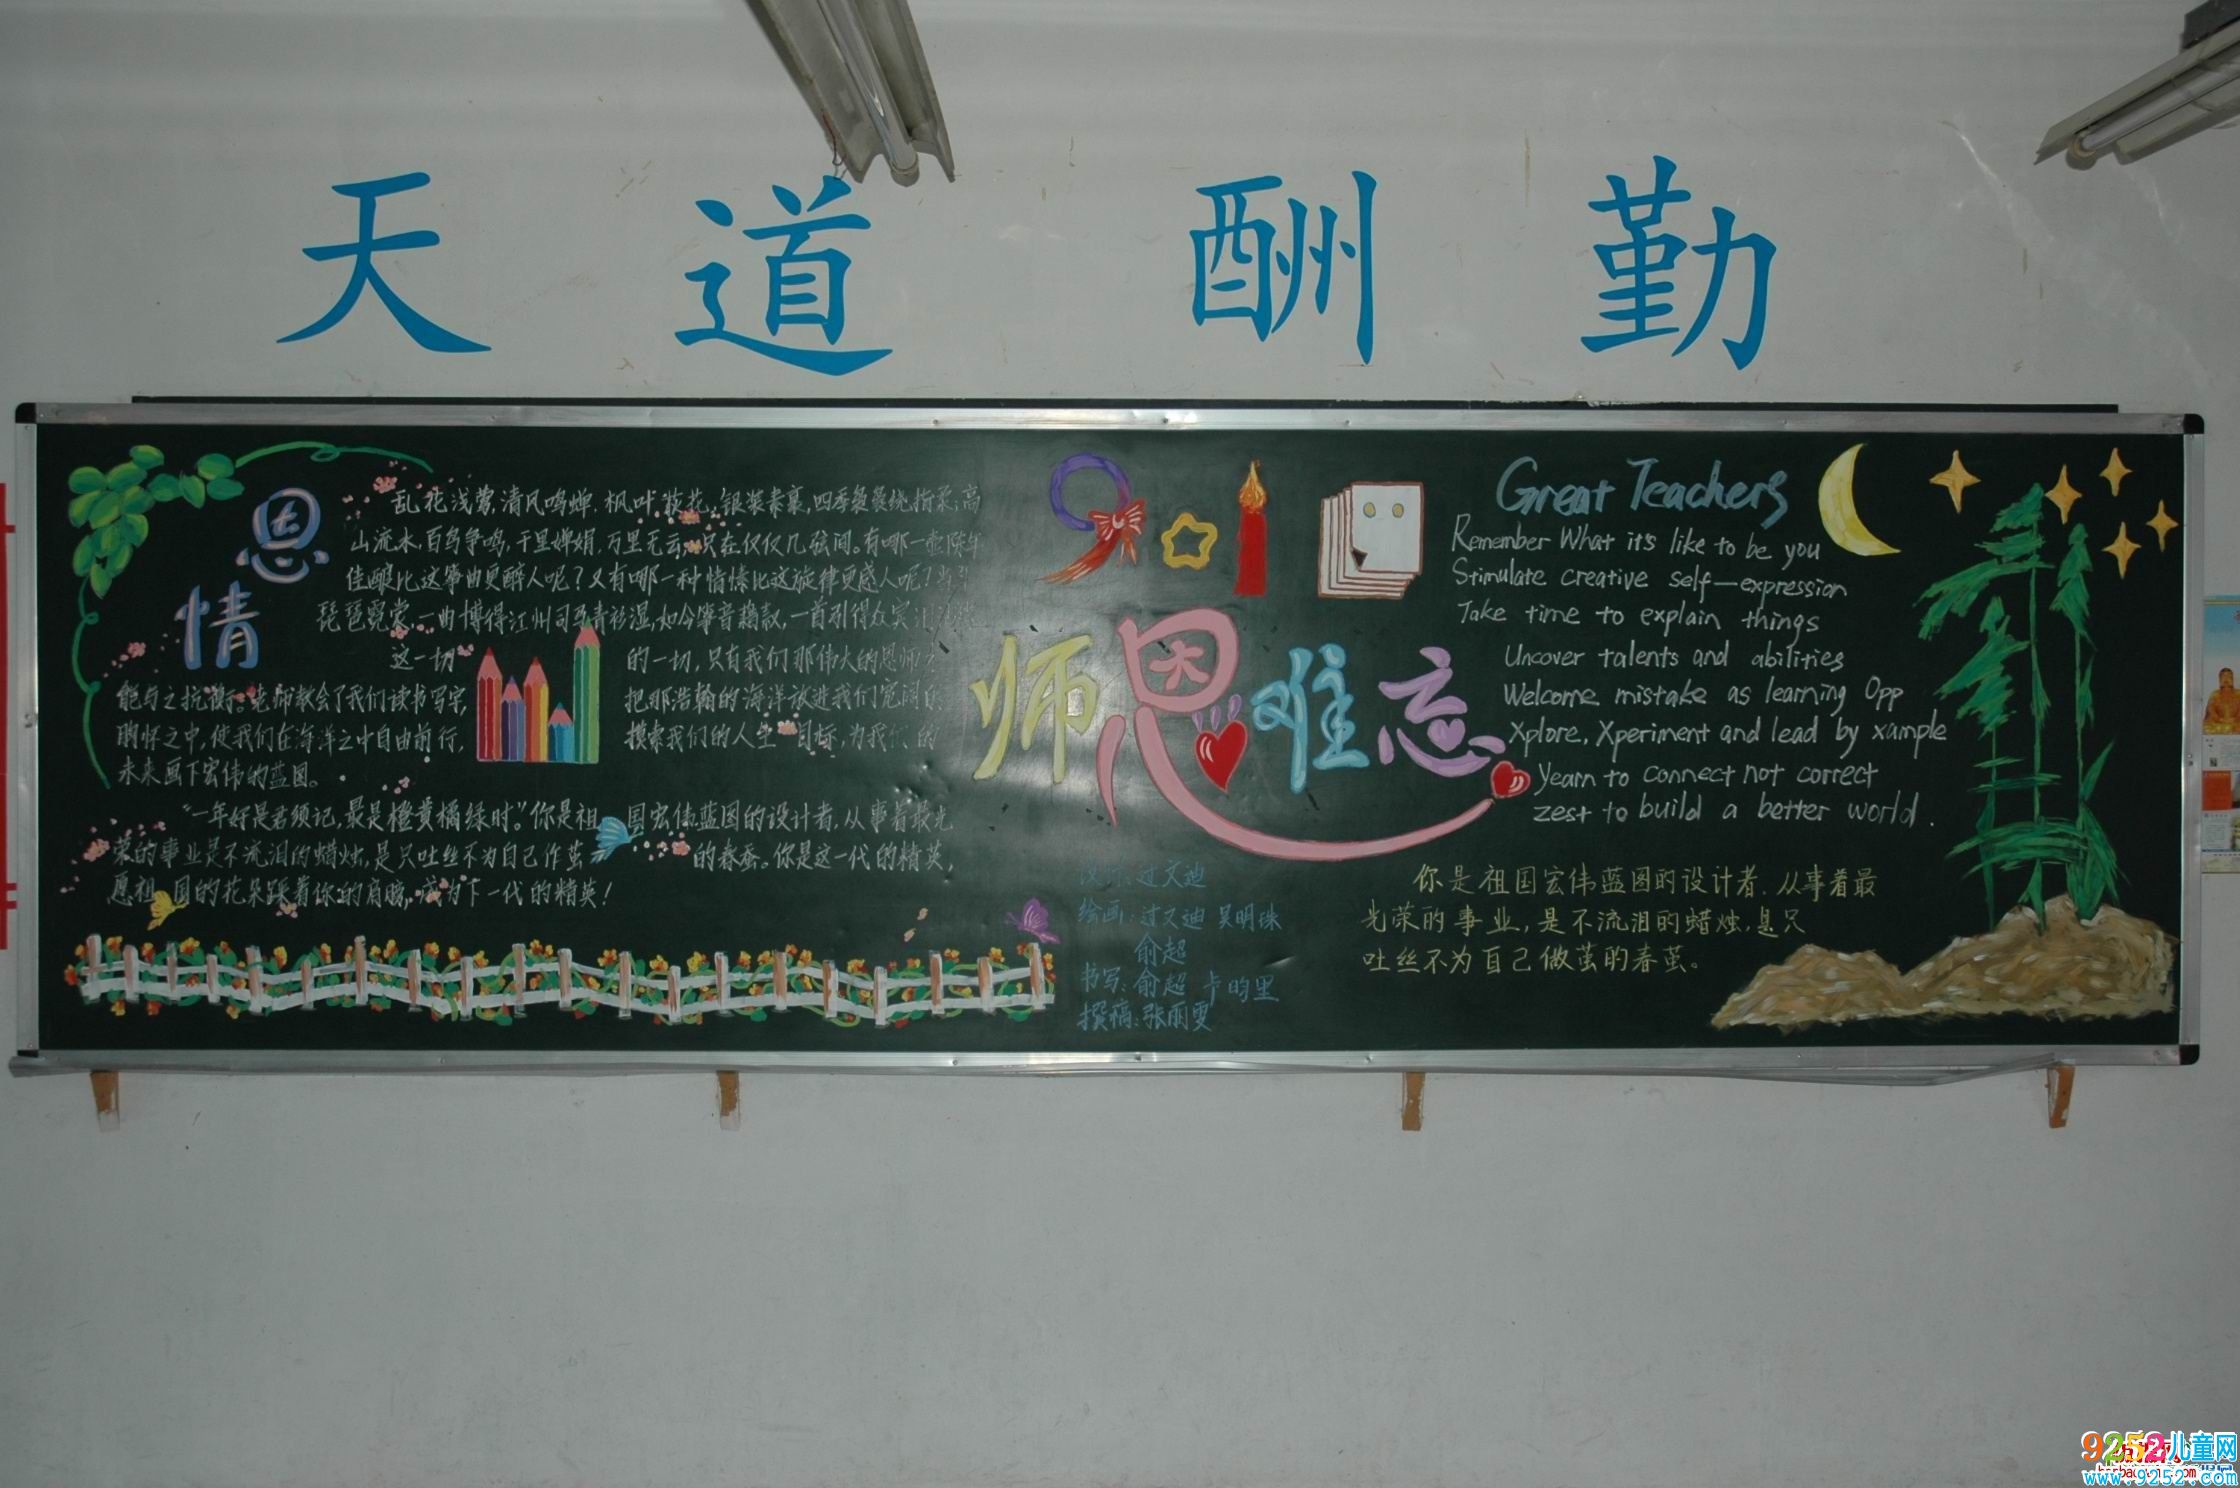 天道酬勤
恩情
乱花浅莺,清风鸣蝉,枫叶荻花,银装素裹,四季袅袅绕指柔;高
山流水,百鸟争鸣,千里婵娟,万里无云,只在仅仅几弦间。有哪一壶陈年
佳酿比这筝曲更醉人呢?又有哪一种情愫比这旋律更感人呢?当
琵琶霓裳,一曲博得江州司马青衫湿,如今筝音,一首引得众宾泪
这一切的一切,只有我们那伟大的恩师才
能与之抗衡。老师教会了我们读书写字,把那浩瀚的海洋放进我们宽阔的
胸怀之中,使我们在海洋之中自由前行,摸索我们的人生目标,为我们的
未来画下宏伟的蓝图。
“一年好是君须记,最是橙黄橘绿时。”你是祖国宏伟蓝图的设计者,从事着最光
荣的事业是不流泪的蜡烛,是只吐丝不为自己作茧的春蚕。你是这一代的精英,
愿祖国的花朵踩着你的肩膀,成为下一代的精英!
师恩难忘
过文迪
绘画:过文迪 吴明珠
俞超
书写:俞超 卡昀里
撰稿:张丽雯
Great Teachers
Remember What it's like to be you
Stimulate creative self-expression
Take time to explain things
Uncover talents and abilities
Welcome mistake as learning Opp
Xplore, Xperiment and lead by xample
Yearn to connect not correct
zest to build a better world.
你是祖国宏伟蓝图的设计者,从事着最
光荣的事业,是不流泪的蜡烛,是只
吐丝不为自己做茧的春茧。
9252儿童网
www.9252.com